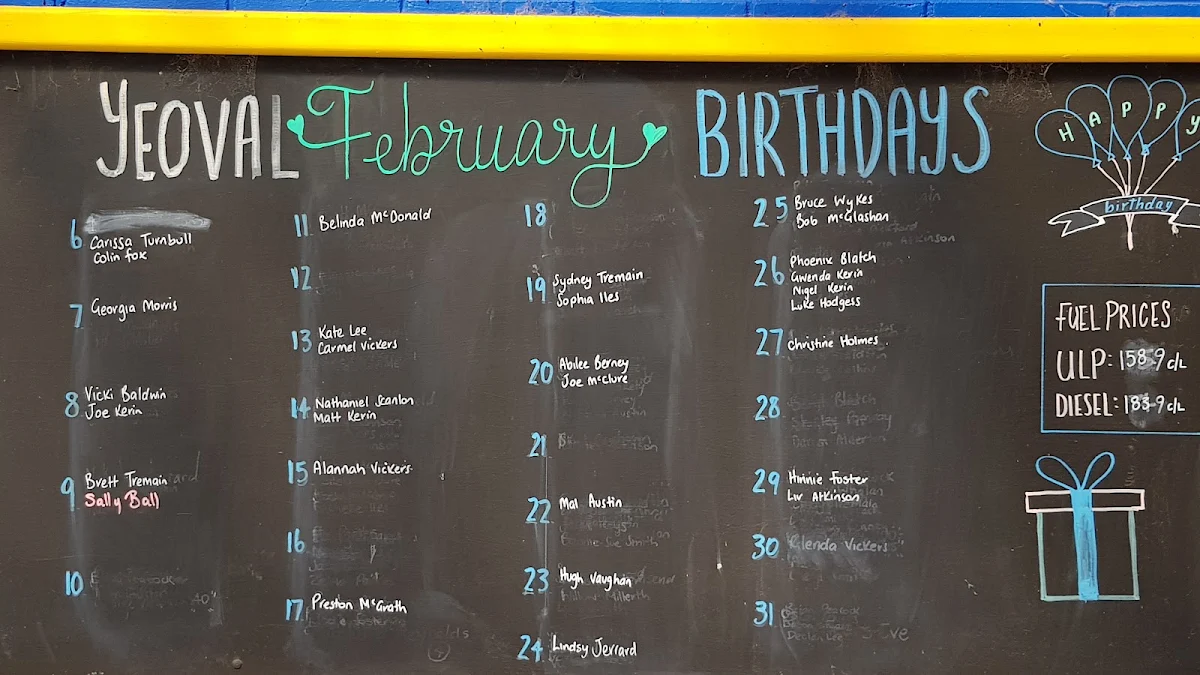 YEOVAL February BIRTHDAYS
HAPPY
birthday
6
Carissa Turnbull
Colin Fox
7 Georgia Morris
8 Vicki Baldwin
Joe Kerin
9 Brett Tremain
Sally Ball
10
11 Belinda McDonald
12
13 Kate Lee
Carmel Vickers
14 Nathaniel Scanlon
Matt Kerin
15 Alannah Vickers
16
17 Preston McGrath
18
19 Sydney Tremain
Sophia Iles
20 Abilee Berney
Joe McClure
21
22 Mal Austin
23 Hugh Vaughan
24 Lindsy Jerrard
25 Bruce Wykes
Bob McGlashan
26 Phoenix Blatch
Gwenda Kerin
Nigel Kerin
Luke Hodgess
27 Christine Holmes
28
29 Hinnie Foster
Liv Atkinson
30 Glenda Vickers
31
FUEL PRICES
ULP: 158.9 c/L
DIESEL: 183.9 c/L